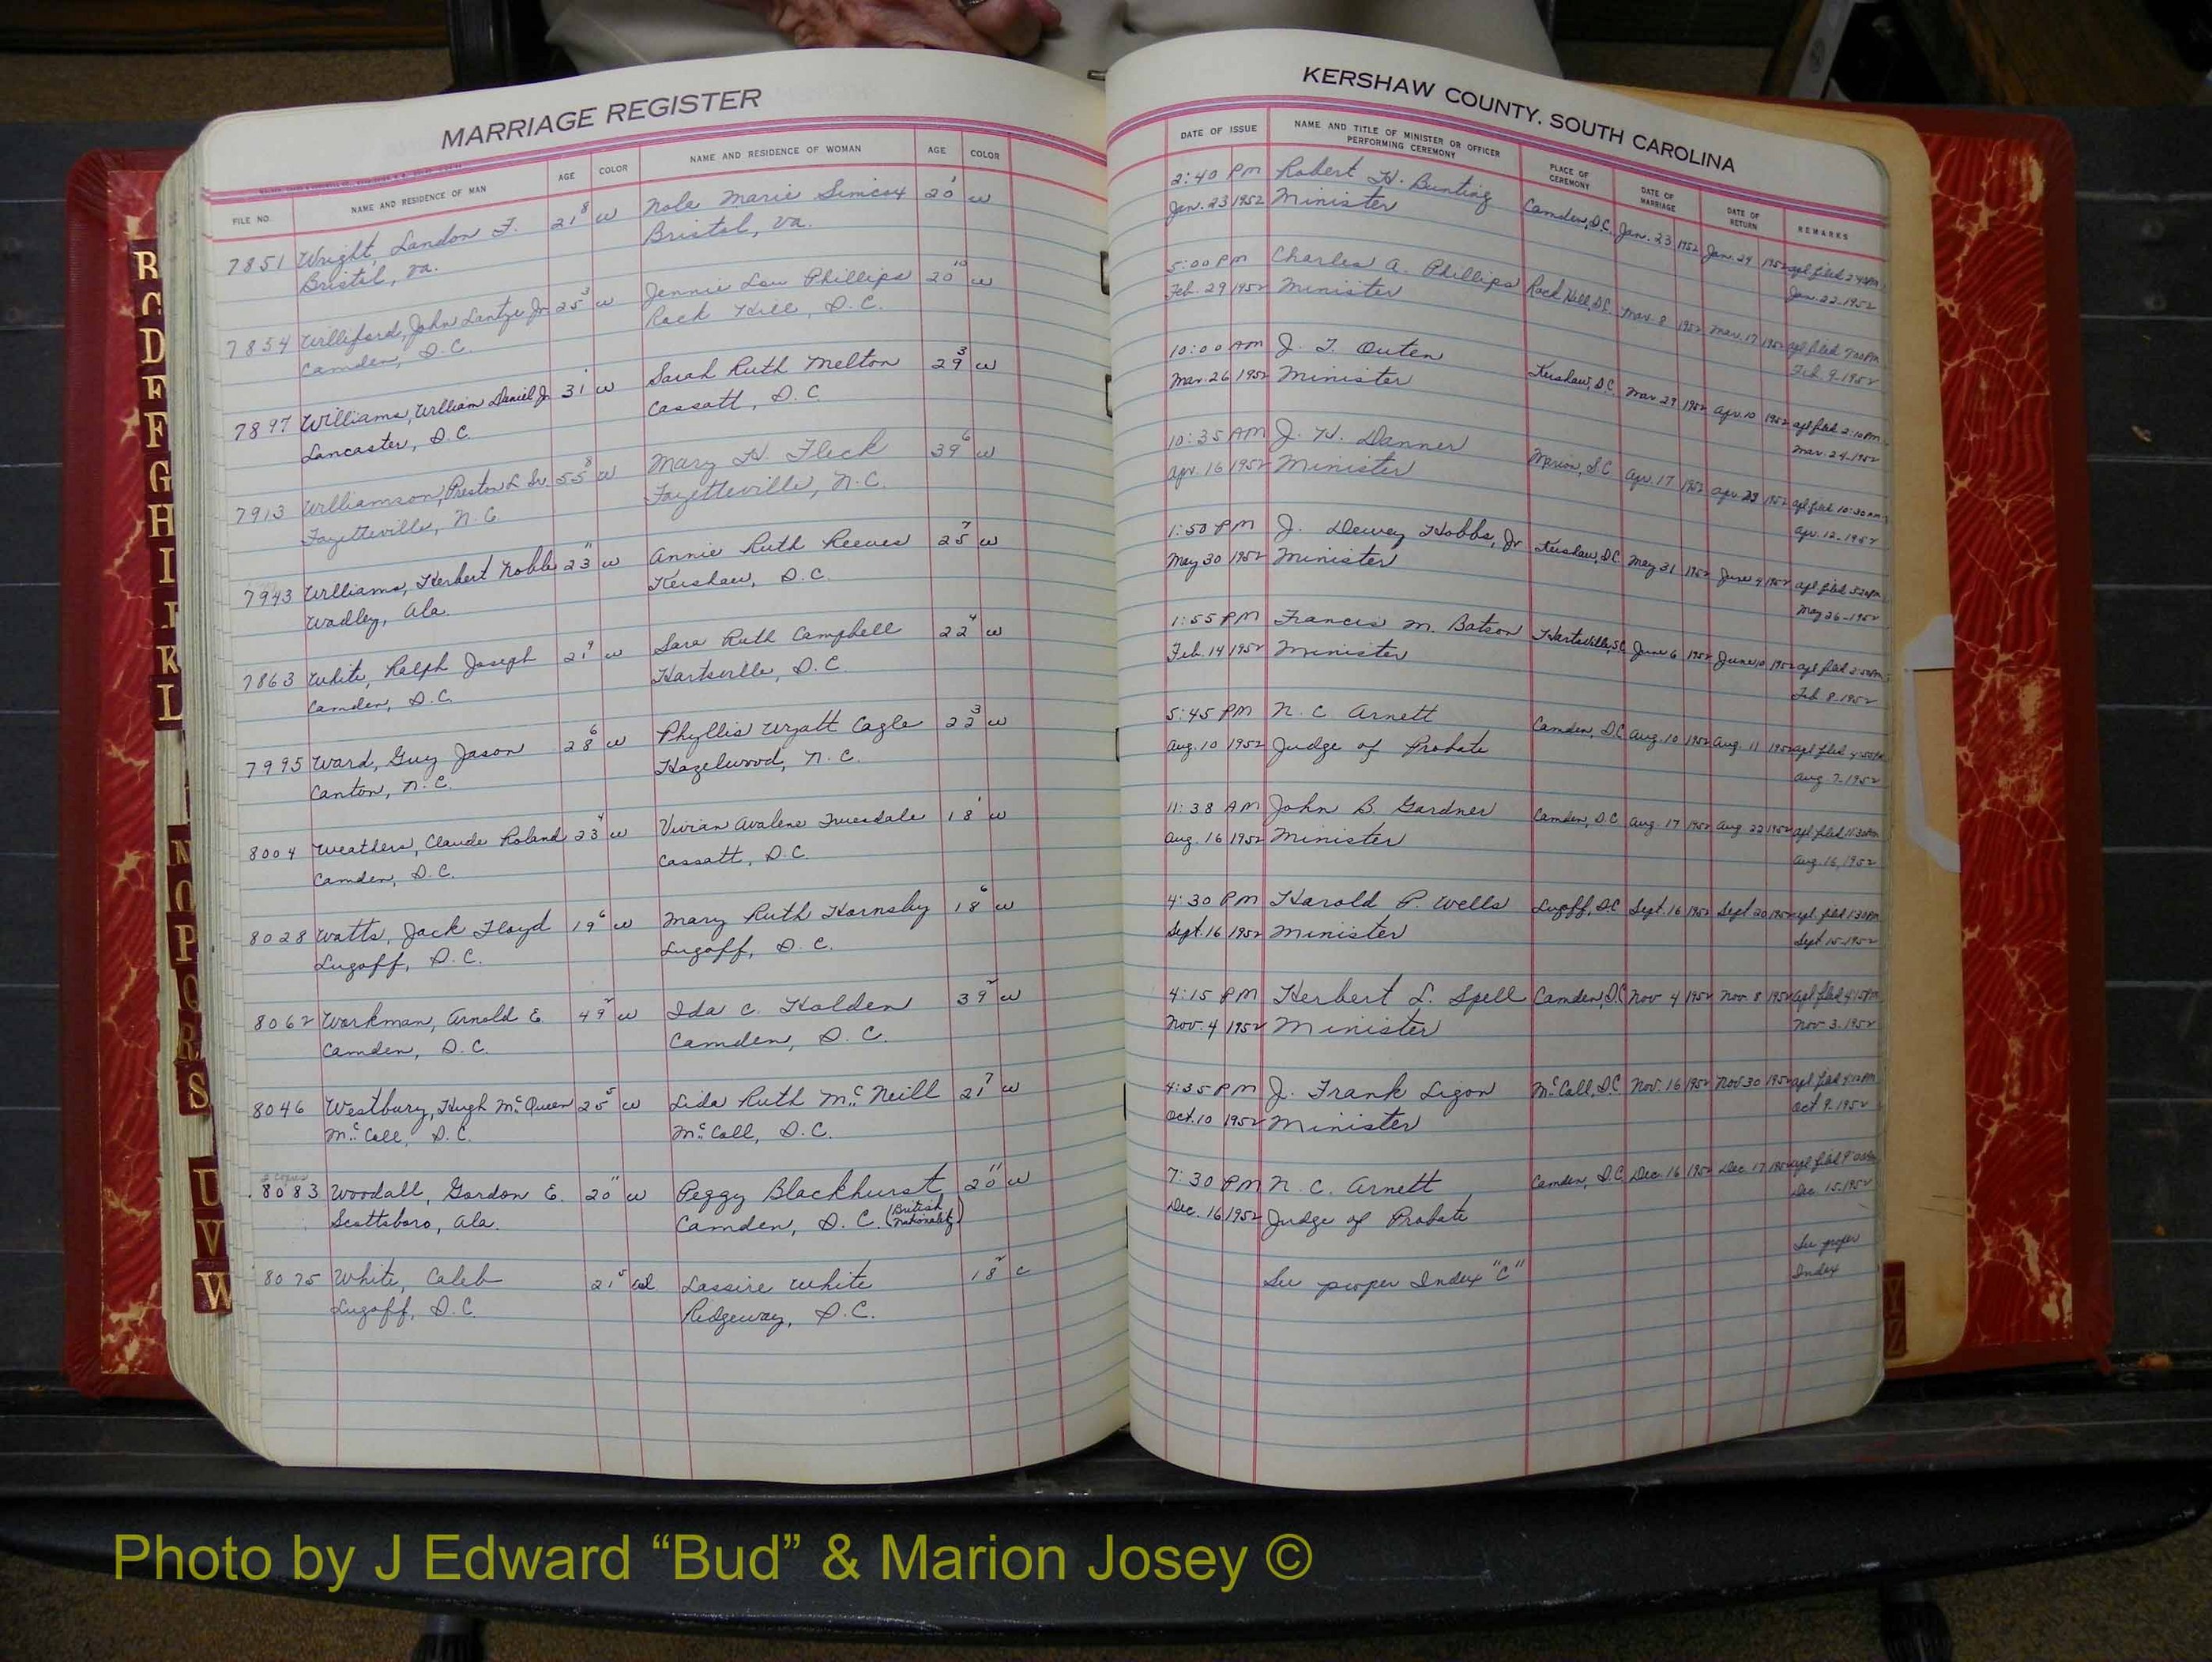 MARRIAGE REGISTER
FILE NO. NAME AND RESIDENCE OF MAN AGE COLOR NAME AND RESIDENCE OF WOMAN AGE COLOR
7851 Wright, Landon F. 21 8 W Nola Marie Simcox 20 1 W
Bristol, Va. Bristol, Va.
7854 Williford, John Lantze Jr 25 3 W Jennie Lou Phillips 20 10 W
Camden, S.C. Rock Hill, S.C.
7897 Williams, William Daniel Jr 31 1 W Sarah Ruth Melton 29 3 W
Lancaster, S.C. Cassatt, S.C.
7913 Williamson, Preston L Sr. 55 8 W Mary H Fleck 39 6 W
Fayetteville, N.C. Fayetteville, N.C.
7943 Williams, Herbert Noble 23 11 W Annie Ruth Reeves 25 7 W
Wadley, Ala. Kershaw, S.C.
7863 White, Ralph Joseph 21 9 W Sara Ruth Campbell 22 4 W
Camden, S.C. Hartsville, S.C.
7995 Ward, Guy Jason 28 6 W Phyllis Wyatt Cagle 22 3 W
Canton, N.C. Hazelwood, N.C.
8004 Weathers, Claude Roland 23 4 W Vivian Avalene Truesdale 18 1 W
Camden, S.C. Cassatt, S.C.
8028 Watts, Jack Floyd 19 6 W Mary Ruth Hornsby 18 6 W
Lugoff, S.C. Lugoff, S.C.
8062 Workman, Arnold E. 49 2 W Ida C. Holden 39 2 W
Camden, S.C. Camden, S.C.
8046 Westbury, Hugh McQueen 25 5 W Lida Ruth McNeill 21 7 W
McColl, S.C. McColl, S.C.
8083 Woodall, Gordon E. 20 11 W Peggy Blackhurst 20 11 W
Scottsboro, Ala. Camden, S.C. (British Nationality)
8075 White, Caleb 21 5 Col Lassire White 18 2 C
Lugoff, S.C. Ridgeway, S.C.
KERSHAW COUNTY, SOUTH CAROLINA
DATE OF ISSUE NAME AND TITLE OF MINISTER OR OFFICER PERFORMING CEREMONY PLACE OF CEREMONY DATE OF MARRIAGE DATE OF RETURN REMARKS
2:40 PM Robert H. Bunting Camden, S.C. Jan. 23 1952 Jan. 24 1952 apl filed 2:40 PM
Jan. 23 1952 Minister Jan. 22-1952
5:00 PM Charles A. Phillips Rock Hill, S.C. Mar. 8 1952 Mar. 17 1952 apl filed
Feb. 29 1952 Minister Feb. 9-1952
10:00 AM J. T. Outen Kershaw, S.C. Mar. 29 1952 Apr. 10 1952 apl filed 2:10 PM
Mar. 26 1952 Minister Mar. 24-1952
10:35 AM J. H. Danner Marion, S.C. Apr. 17 1952 Apr. 23 1952 apl filed 10:30 AM
Apr. 16 1952 Minister Apr. 12-1952
1:50 PM J. Dewey Hobbs, Jr Kershaw, S.C. May 31 1952 June 9 1952 apl filed
May 30 1952 Minister May 26-1952
1:55 PM Francis M. Batson Hartsville, S.C. June 6 1952 June 10 1952 apl filed
Feb. 14 1952 Minister Feb. 8-1952
5:45 PM N. C. Arnett Camden, S.C. Aug. 10 1952 Aug. 11 1952 apl filed
Aug. 10 1952 Judge of Probate Aug. 7-1952
11:38 AM John B. Gardner Camden, S.C. Aug. 17 1952 Aug 22 1952 apl filed 11:30 AM
Aug. 16 1952 Minister Aug. 16, 1952
4:30 PM Harold P. Wells Lugoff, S.C. Sept. 16 1952 Sept 20 1952 apl. filed 1:30 PM
Sept. 16 1952 Minister Sept 15-1952
4:15 PM Herbert L. Spell Camden, S.C. Nov 4 1952 Nov. 8 1952 apl filed 4:15 PM
Nov. 4 1952 Minister Nov 3-1952
4:35 PM J. Frank Ligon McColl, S.C. Nov. 16 1952 Nov 30 1952 apl filed
Oct. 10 1952 Minister Oct 9-1952
7:30 PM N. C. Arnett Camden, S.C. Dec. 16 1952 Dec. 17 1952 apl filed
Dec. 16 1952 Judge of Probate Dec. 15-1952
See proper Index "C" See proper Index
B
C
D
E
F
G
H
I
K
L
N
O
P
Q
R
S
U
V
W
Y
Z
Photo by J Edward “Bud” & Marion Josey ©